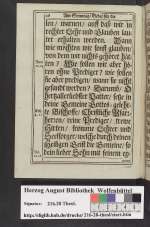 len / warten / auff daß wir in
rechter Lehr und Glauben lau-
ter erhalten werden. Wann
wie möchten wir sonst glauben
von dem wir nichts gehöret hät-
ten / Wie sollen wir aber hö-
ren ohne Prediger / wie sollen
sie aber predigen / wann sie nicht
gesandt werden / Darumb / O
hertzallerliebster Vatter / sehe in
deine Gemeine Gottes-geleh-
te Bischoffe / Christliche Pfarr-
herren / reine Prediger / trewe
Hirten / fromme Lehrer und
Seelsorger / welche durch deinen
heiligen Geist die Gemeine /
dein lieber Sohn mit seinem ey-
Herzog August Bibliothek Wolfenbüttel
Signatur: 216.28 Theol.
http://diglib.hab.de/drucke/216-28-theol/start.htm